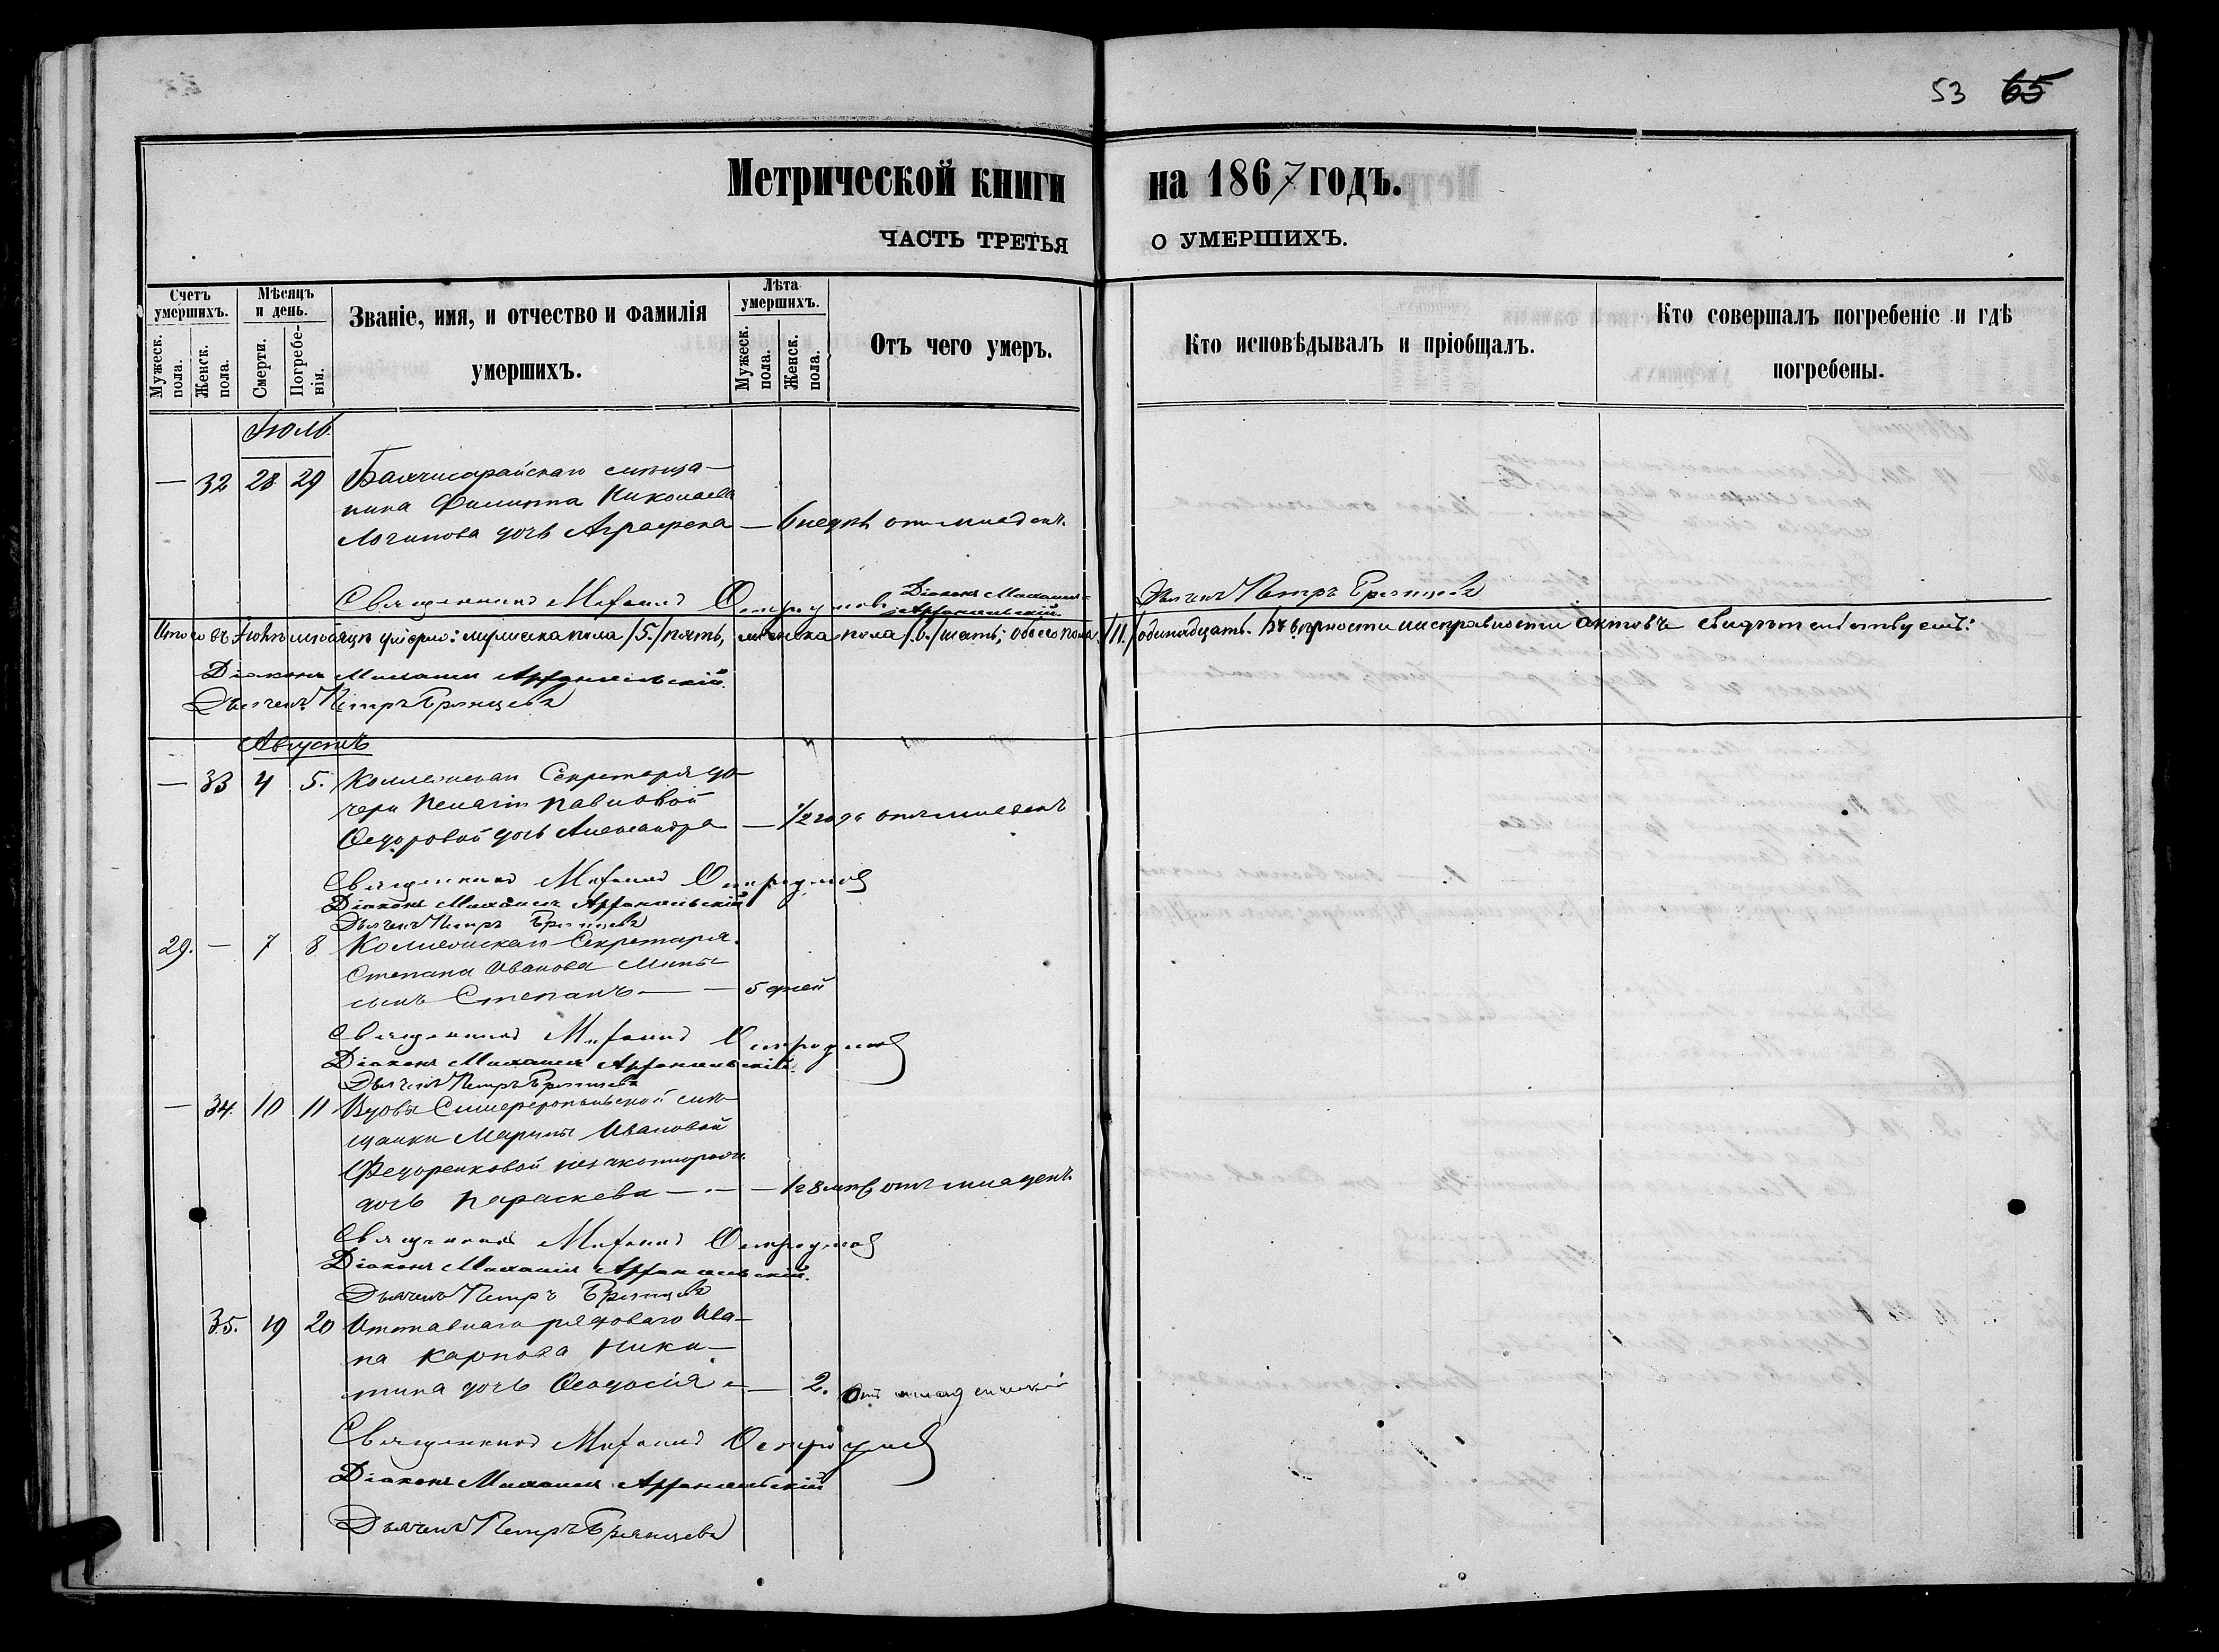 53 65
Метрической книги на 1867 годъ.
ЧАСТЬ ТРЕТЬЯ О УМЕРШИХЪ.
Счетъ умершихъ.
Мужеск. пола.
Женск. пола.
Мѣсяцъ и день.
Смерти.
Погребенія.
Званіе, имя, и отчество и фамилія
умершихъ.
Лѣта умершихъ.
Мужеск. пола.
Женск. пола.
Отъ чего умеръ.
Кто исповѣдывалъ и пріобщалъ.
Кто совершалъ погребеніе и гдѣ
погребены.
Іюль.
— 32 28 29 Бахчисарайскаго мѣща-
нина Филиппа Николаева
Логинова дочь Агрофена — 6 недѣль отъ младен.
Священникъ
Діаконъ Михаилъ Архангельскій.
Дьячекъ Петръ Брянцевъ
Итого въ Іюлѣ мѣсяцѣ умерло: мужеска пола /5./ пять, женска пола /6./ шесть; обоего пола /11./ одинадцать. Въ вѣрности и исправности актовъ свидѣтельствуемъ:
Діаконъ Михаилъ Архангельскій.
Дьячекъ Петръ Брянцевъ
Августъ
— 33 4 5. Коллежскаго Секретаря до-
чери Пелагіи Павловой
Ѳедоровой дочь Александра — 1/2 года отъ младен.
Священникъ
Діаконъ Михаилъ Архангельскій
Дьячекъ Петръ Брянцевъ
29. — 7 8 Коллежскаго Секретаря
Степана Иванова
сынъ Степанъ — — 5 дней
Священникъ
Діаконъ Михаилъ Архангельскій.
Дьячекъ Петръ Брянцевъ
— 34. 10 11 Вдовы Симферопольской мѣ-
щанки Марины Ивановой
Федоренковой незаконнорожд.
дочь Параскева — — 8 мѣс отъ младен.
Священникъ
Діаконъ Михаилъ Архангельскій.
Дьячекъ Петръ Брянцевъ
35. 19 20 Отставнаго рядоваго Ива-
на Карпова Ники-
тина дочь Ѳеодосія — 2. Отъ младенческой
Священникъ
Діаконъ Михаилъ Архангельскій
Дьячекъ Петръ Брянцевъ